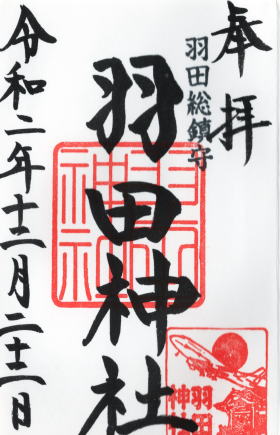 奉拝
羽田総鎮守
羽田神社
令和二年十二月二十二日
羽田神社
羽田
神